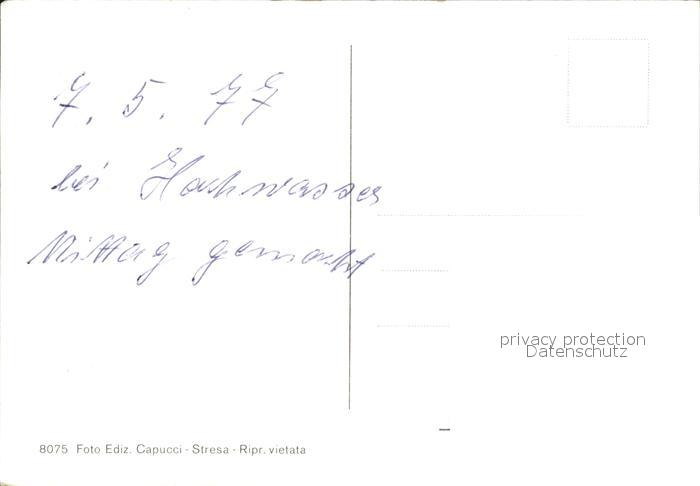 7. 5. 77
bei Hochwasser
Mittag gemacht
privacy protection
Datenschutz
8075 Foto Ediz. Capucci - Stresa - Ripr. vietata